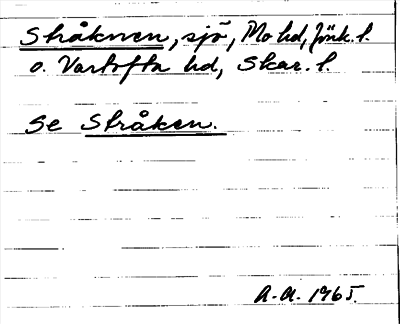 Stråknen, sjö, Mo hd, Jönk. l.
o. Vartofta hd, Skar. l.
Se Stråken.
A.A. 1965.